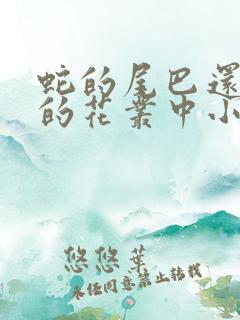 蛇的尾巴还
的花丛中小
悠悠叶
未经同意禁止转载